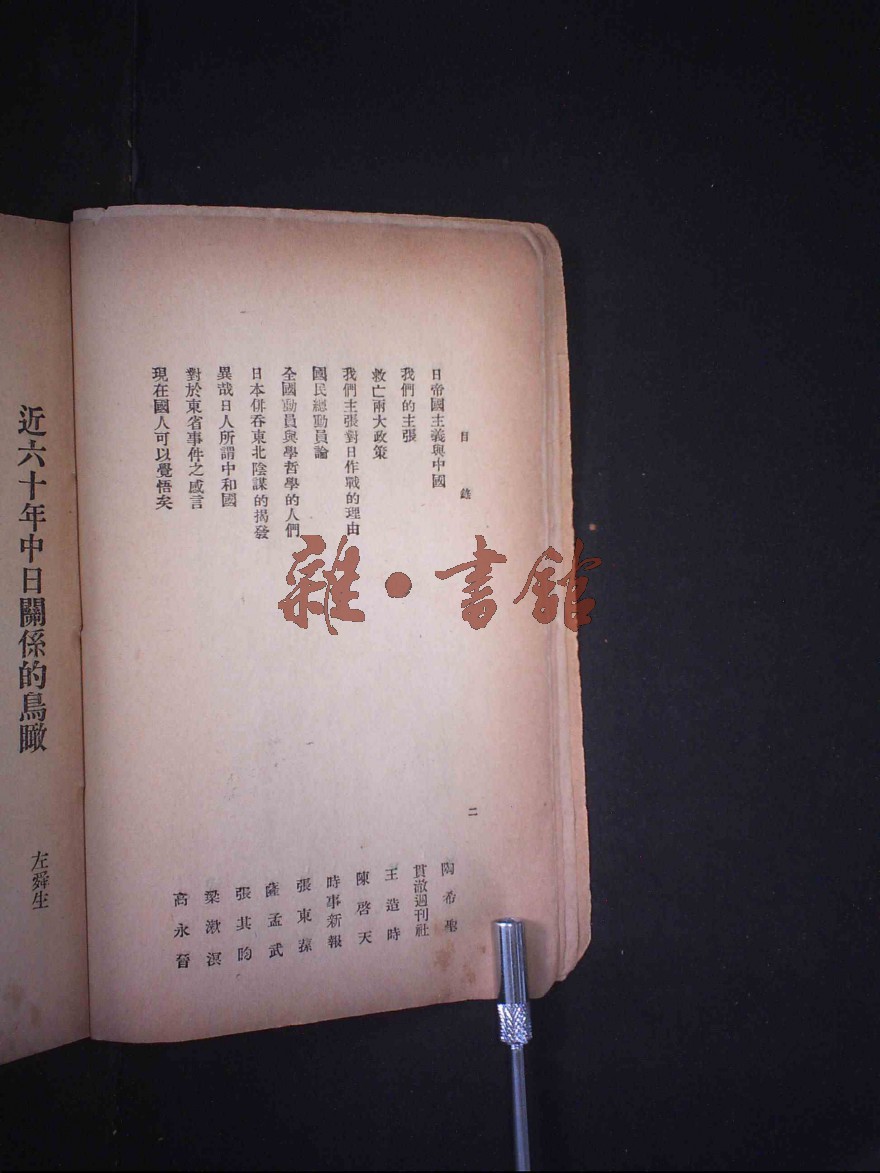 目錄
二
日帝國主義與中國 陶希聖
我們的主張 貫澈週刊社
救亡兩大政策 王造時
我們主張對日作戰的理由 陳啓天
國民總動員論 時事新報
全國動員與學哲學的人們 張東蓀
日本併吞東北陰謀的揭發 薩孟武
異哉日人所謂中和國 張其昀
對於東省事件之感言 梁漱溟
現在國人可以覺悟矣 高永晉
近六十年中日關係的鳥瞰
左舜生
雜·書館